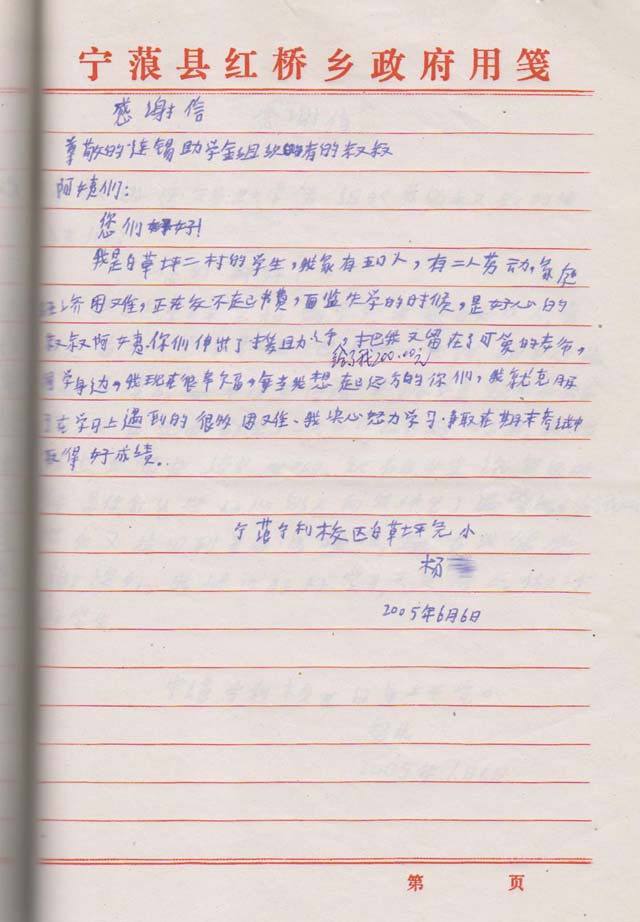 宁蒗县红桥乡政府用笺
感谢信
尊敬的连锡助学金组织的有的叔叔
阿姨们：
您们好！
我是白草坪二村的学生，我家有五口人，有二人劳动，家庭
经济困难，正在交不起书费，面监失学的时候，是好心的
叔叔阿姨你们伸出了援助之手，把我又留在了可爱的老师，
给了我200.00元
同学身边，我现在很幸福，每当我想起远方的你们，我就克服
了在学习上遇到的很多困难。我决心努力学习，争取在期末考试中
取得好成绩。
宁蒗宁利校区白草坪完小
杨
2005年6月6日
第 页